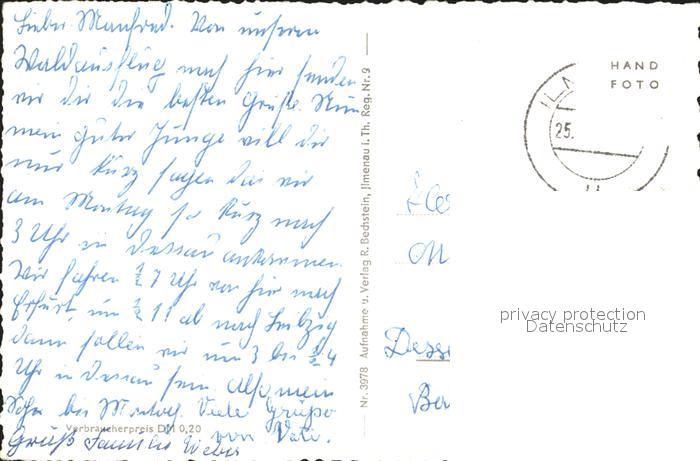 Lieber Manfred. Von unserem
Waldausflug nach hier senden
wir dir die besten Grüße. Nun
mein guter Junge will dir
nur kurz sagen das wir
am Montag so kurz nach
3 Uhr in Dessau ankommen.
Wir fahren ½ 7 Uhr von hier nach
Erfurt, um ½ 11 ab nach Leibzig
dann sollen wir um 3 bis ½ 4
Uhr in Dessau sein. Also mein
Sohn bis Montag. Viele Grüße
von Vati.
Gruß Familie Weber
Verbraucherpreis DM 0,20
Nr. 3978 Aufnahme u. Verlag R. Bechstein, Jlmenau i. Th. Reg. Nr. 9
HAND
FOTO
ILM
25.
M
Dess
privacy protection
Datenschutz